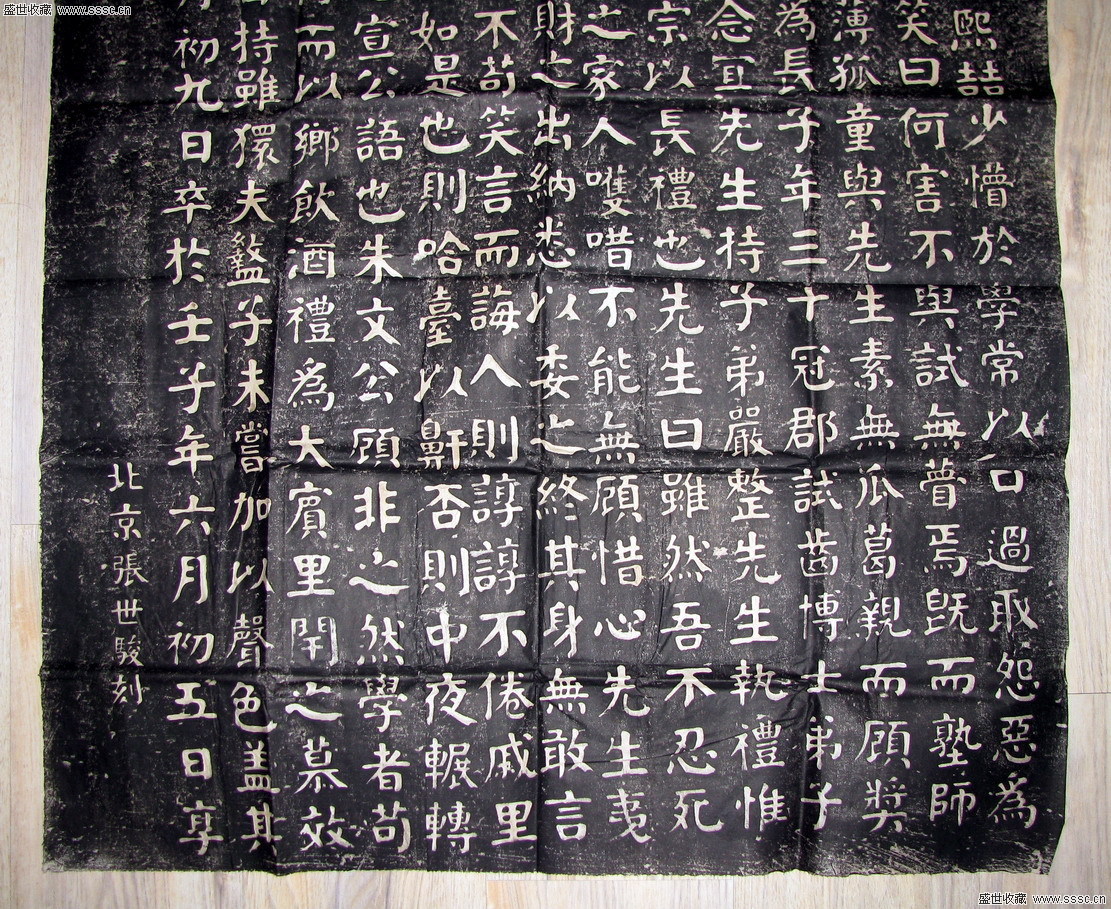 盛世收藏 www.sssc.cn
盛世收藏 www.sssc.cn
熙喆少懵於學常以口過取怨惡為
笑曰何害不與試無瞢焉旣而塾師
薄狐童與先生素無瓜葛親而顧奬
為長子年三十冠郡試齒博士弟子
念宜先生持子弟嚴整先生執禮惟
宗以長禮也先生曰雖然吾不忍死
之家人唶不能無顧惜心先生夷
財之出納悉以委之終其身無敢言
不苟笑言而誨人則諄諄不倦戚里
如是也則哈臺以鼾否則中夜輾轉
宣公語也朱文公顧非之然學者苟
而以鄉飲酒禮為大賓里閈之慕效
持雖獧夫盭子未嘗加以聲色盖其
初九日卒於壬子年六月初五日享
北京張世駿刻
盛世收藏 www.sssc.cn